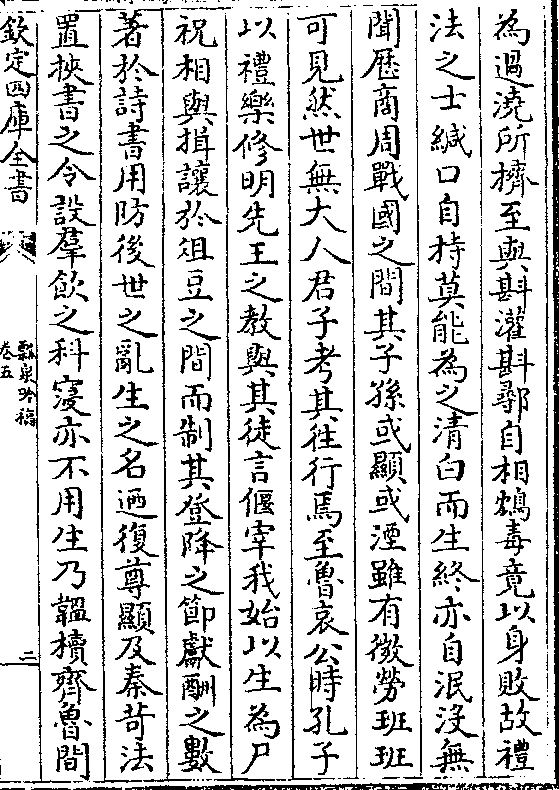 為過澆所擠至與斟灌斟鄩自相鴆毒竟以身敗故禮
法之士緘口自持莫能為之清白而生終亦自泯没無
聞歷商周戰國之間其子孫或顯或湮雖有微勞班班
可見然世無大人君子考其徃行焉至魯哀公時孔子
以禮樂修明先王之教與其徒言偃宰我始以生為尸
祝相與揖讓於俎豆之間而制其登降之節獻酬之數
著於詩書用防後世之亂生之名迺復尊顯及秦苛法
置挾書之令設羣飲之科寖亦不用生乃韞櫝齊魯間
欽定四庫全書
瓢泉吟稿
卷五
二